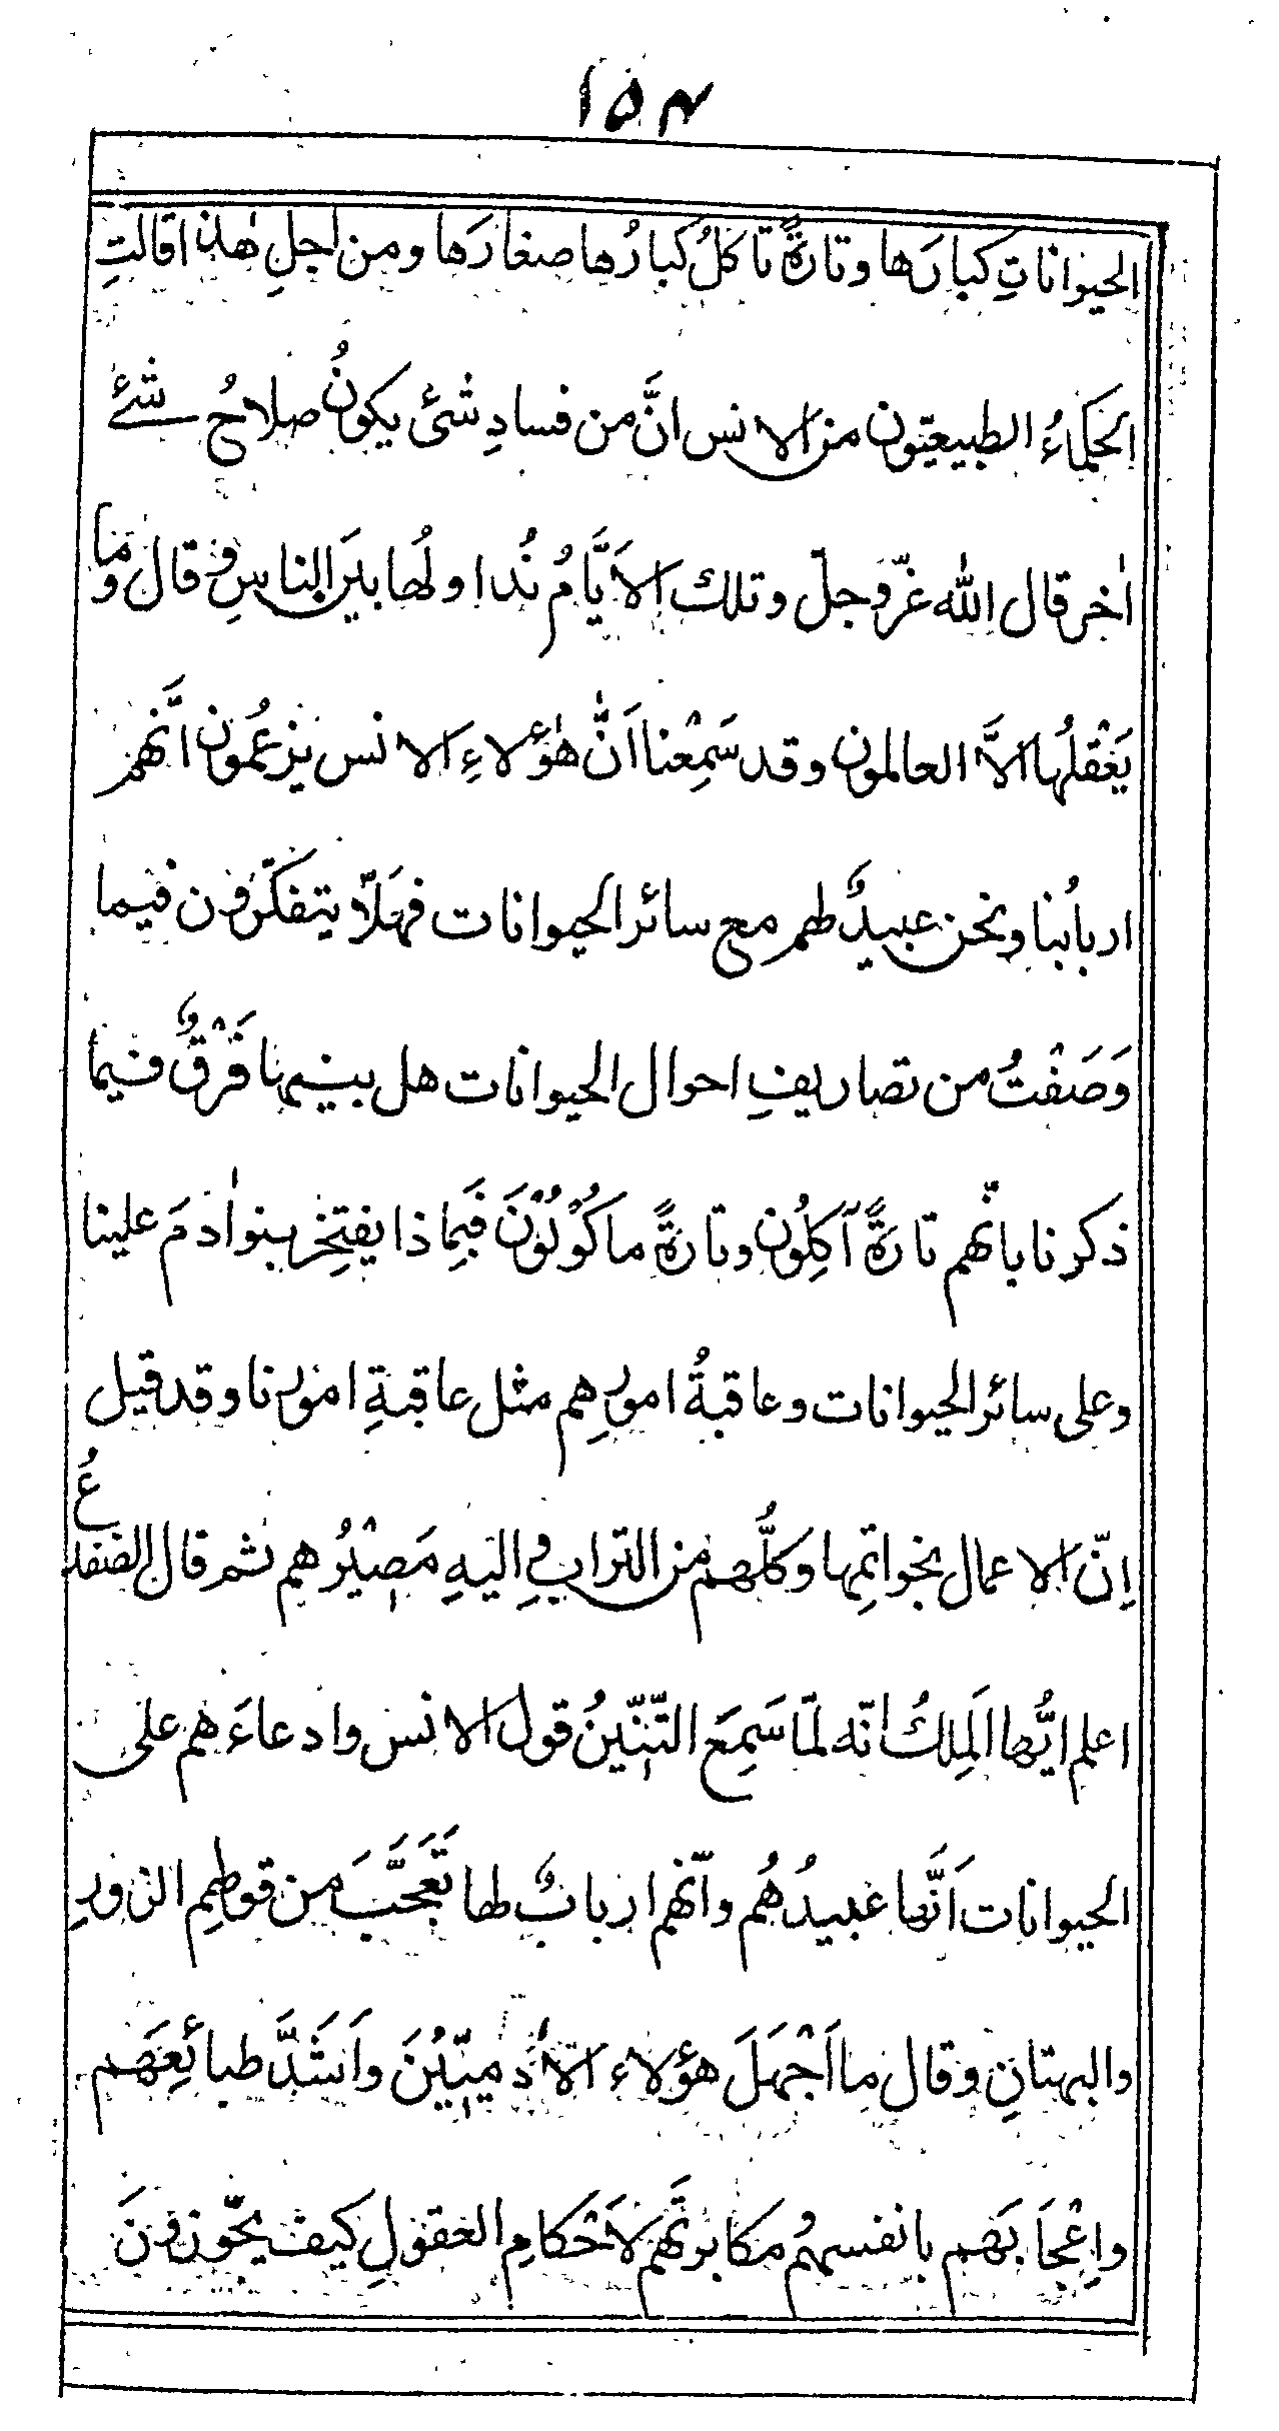 ١٥٤
الحيواناتِ كبارَها وتارةً تاكلُ كبارُها صغارَها ومن اجلِ هٰذا قالتِ
الحكماءُ الطبيعيّون من الانس انَّ من فسادِ شئ يكونُ صلاحُ شئے
اٰخر قال الله عزّ وجلّ وتلك الاَيَّامُ نُداولُها بينَ الناسِ وقال وما
يَعْقلُها الاَّ العالمون وقد سَمِعْنا اَنَّ هٰؤلاءِ الانس يزعُمون انَّهم
اربابُنا ونحن عبيدٌ لهم مع سائر الحيوانات فهَلاَّ يتفكّرون فيما
وَصَفْتُ من تصاريفِ احوال الحيوانات هل بينهما فَرْقٌ فيما
ذكرنا بانّهم تارةً آكِلُون وتارةً ماكُوْلُوْنَ فَبِماذا يفتخِر بنو اٰدمَ علينا
وعلى سائر الحيوانات وعاقبةُ امورِهم مثل عاقبةِ امورنا وقد قيل
اِنّ الاعمال بخواتِمِها وكلُّهم من الترابِ واليهِ مَصِيْرُهم ثم قال الضفدعُ
اعلم ايُّها المَلِكُ انّه لمّا سَمِعَ التِّنِّينُ قول الانس وادعاءَهم على
الحيوانات اَنَّها عبيدُهُم وانّهم اربابٌ لها تَعَجَّبَ من قولهِم الزورِ
والبهتانِ وقال ما اَجْهَلَ هؤلاء الاٰدميّيْنَ واَشَدَّ طبائعِهَم
واِعْجابَهم بانفسهم مُكابرتَهم لاَحْكامِ العقولِ كيف يجّوزونَ